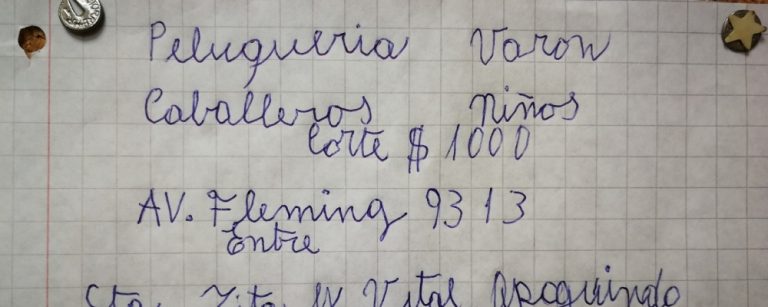 Peluqueria Varon
Caballeros Niños
Corte $ 1000
AV. Fleming 9313
Entre
Vital Apoquindo